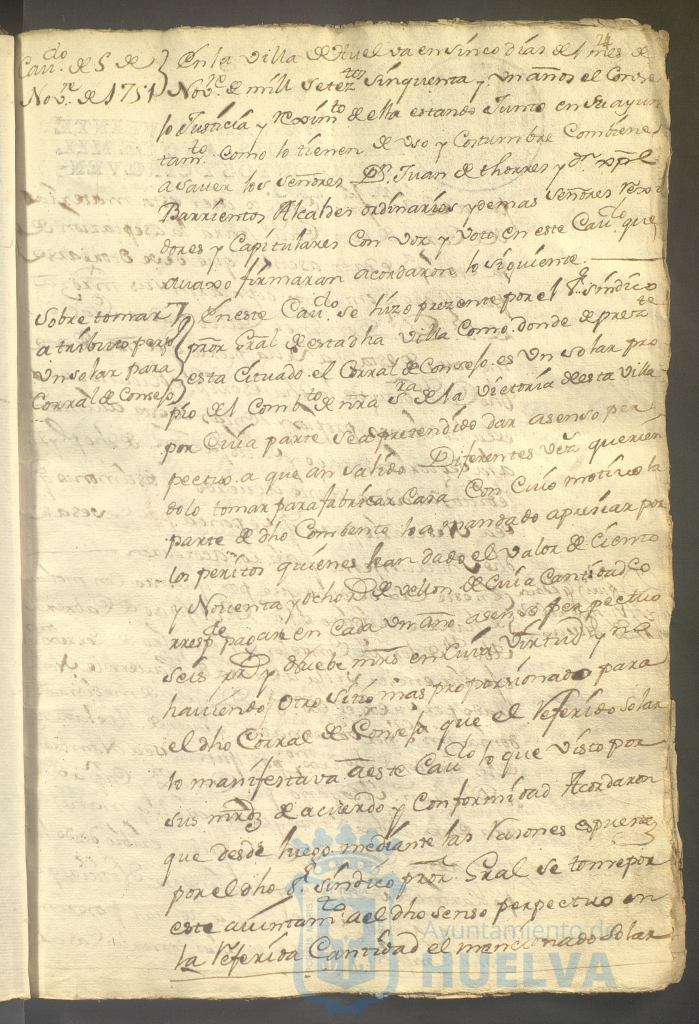 24
Cav.do de 5 de
Nov.re de 1751
En la Villa de Huelva en sinco dias del mes de
Nov.e de mill setez.tos sinquenta y un años el Conse
lo Justicia y Reximto de ella estando Junto en su ayun
tam.to como lo tienen de uso y Costumbre Combiene
a saver los señores Dn. Juan de thorres y dn.
Barrientos Alcaldes ordinarios y demas señores Rexi
dores y Capitulares Con voz y Voto en este Cav.do que
avaxo firmaran acordaron lo siguiente.
Sobre tomar
a tributo perp.o
un solar para
Corral de Consejo
En este Cav.do se hizo prezente por el Sr. sindico
pror Gral de esta dha Villa Como donde de prez.te
esta Cituado el Corral de Consejo es un solar pro
pio del Comb.to de nra Sra de la Victoria desta Villa
por Cuia parte se a pretendido dar a senso per
pectuo a que an salido Diferentes vez querien
dolo tomar para fabricar Casa Con Cuio motivo la
parte de dho Combento ha mandado apreciar por
los peritos quienes lean dado el valor de Ciento
y Noventa y ocho Rs de vellon de Cuia Cantidad Co
rresp.de pagar en Cada un año a senso perpectuo
seis rrs y nuebe mrs en Cuia Virtud y no
haviendo otro sitio mas proporsionado para
el dho Corral de Consejo que el Referido Solar
lo manifestava a este Cav.do lo que visto por
sus mrdz de acuerdo y Conformidad Acordaron
que desde luego mediante las Rasones espues
por el dho Sr. sindico pror Gral se tome por
este aiuntam.to a el dho senso perpectuo en
la Referida Cantidad el mencionado Solar
Ayuntamiento de
HUELVA